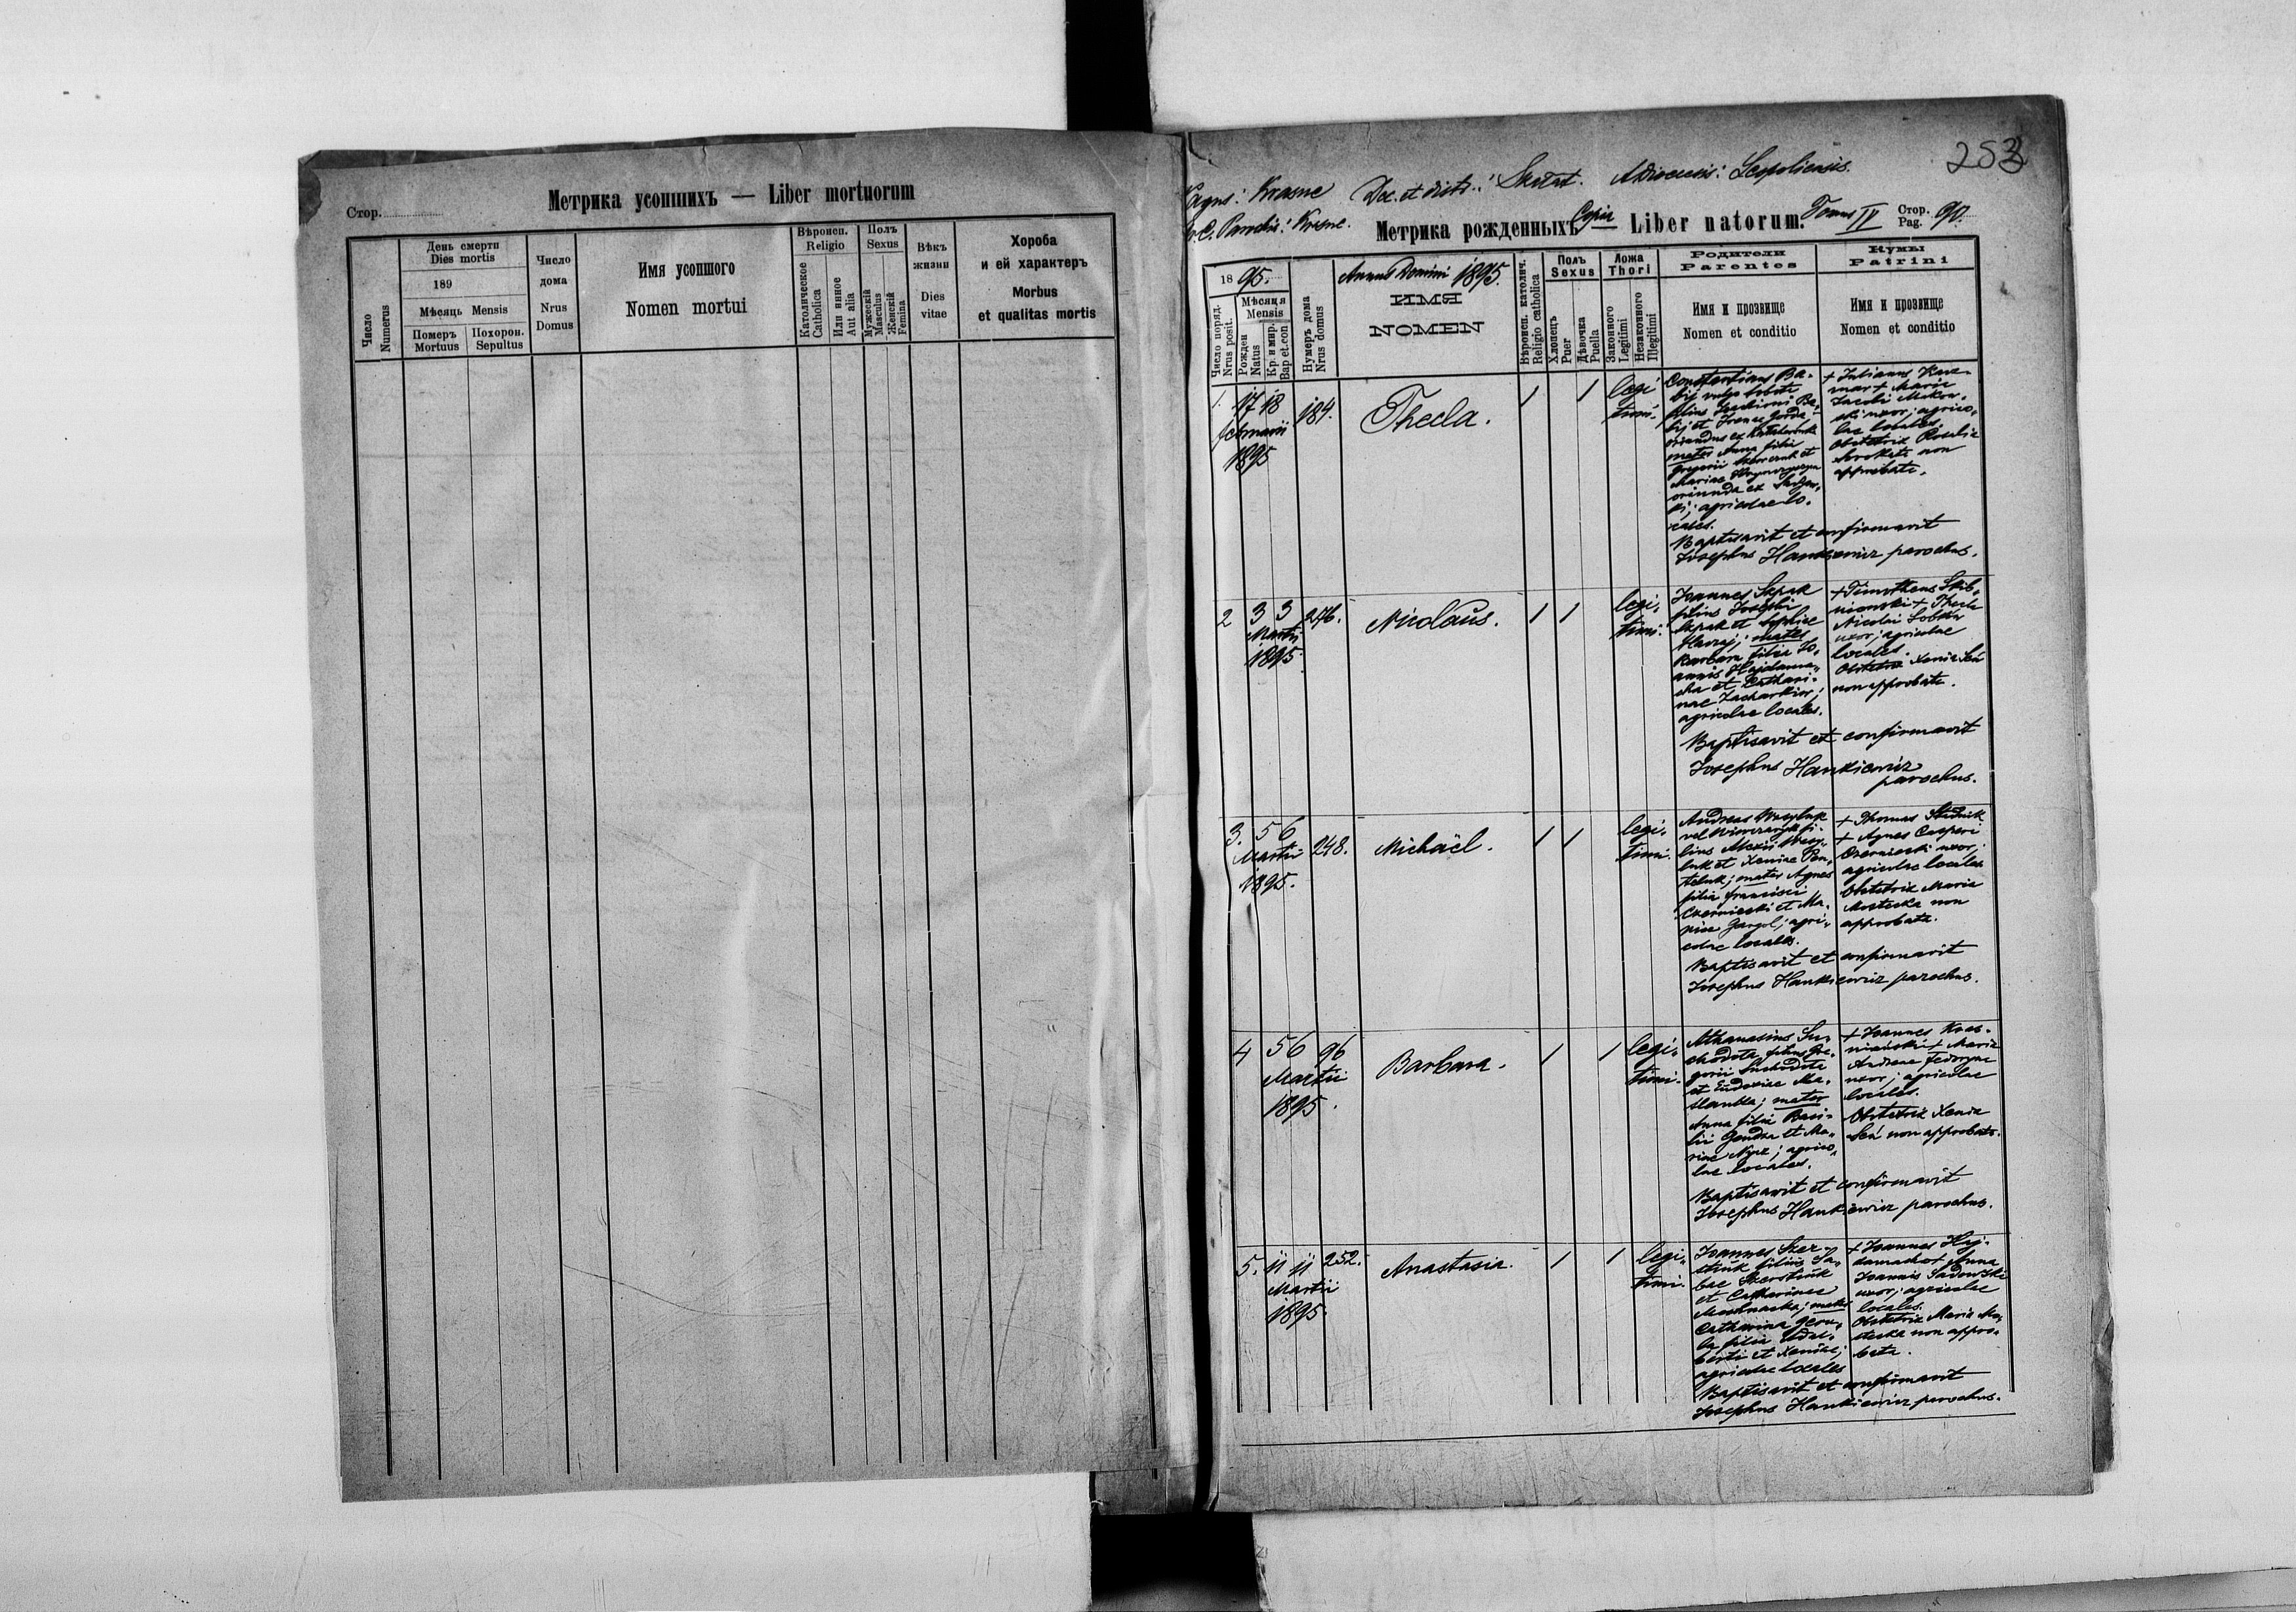 Стор.
Метрика усопшихъ — Liber mortuorum
Число
Numerus
День смерти
Dies mortis
189
Мѣсяць Mensis
Померъ
Mortuus
Похорон.
Sepultus
Число
дома
Nrus
Domus
Имя усопшого
Nomen mortui
Вѣроисп.
Religio
Католическое
Catholica
Или инное
Aut alia
Полъ
Sexus
Мужескій
Masculus
Женскій
Femina
Вѣкъ
жизни
Dies
vitae
Хороба
и ей характеръ
Morbus
et qualitas mortis
253
Krasne Dec. et distr.: Skałat. ADioecesis: Leopoliensis.
Parochia: Krasne.
Метрика рожденныхъ Copia — Liber natorum. Tomus IV Стор. Pag. 90.
1895.
Число поряд.
Nrus posit.
Мѣсяця
Mensis
Рожден
Natus
Кр. и мир.
Bap et.con
Нумеръ дома
Nrus domus
Annus Domini 1895.
ИМЯ
NOMEN
Вѣроисп. католич.
Religio catholica
Полъ
Sexus
Хлопець
Puer
Дѣвочка
Puella
Ложа
Thori
Законного
Legitimi
Незаконного
Illegitimi
Родители
Parentes
Имя и прозвище
Nomen et conditio
Кумы
Patrini
Имя и прозвище
Nomen et conditio
1. 17 18
februarii
1895
184.
Thecla.
1 1
legi-
timi.
Constantinus Ba-
mater Anna filia
Gregorii
Mariae
oriunda ex
agricolae lo-
cales.
+ Julianus
+ Maria
Jacobi
uxor; agrico-
lae locales.
Obstetrix Rosalia
non
approbata.
Baptisavit et confirmavit
Josephus Hankiewicz parochus.
2 3 3
Martii
1895
246.
Nicolaus.
1 1
legi-
timi.
Joannes Skpak
filius Josephi
Skpak et Sophiae
Havraj; mater
Barbara filia Jo-
annis Hajdama-
cha et Cathari-
nae Zacharkiw;
agricolae locales.
+ Timotheus
+ Thecla
Nicolai
uxor; agricolae
locales.
Obstetrix Xenia Seń
non approbata.
Baptisavit et confirmavit
Josephus Hankiewicz
parochus.
3. 5 6
Martii
1895.
248.
Michaël.
1 1
legi-
timi.
Andreas Wasyluk
vel fi-
lius Alexii Wasy-
luk et Xeniae Pan-
teluk; mater Agnes
filia Francisci
Czerniecki et Ma-
riae Gargol; agri-
colae locales.
+ Thomas
+ Agnes Casperi
Czerniecki uxor;
agricolae locales
Obstetrix Maria
Mostecka non
approbata.
Baptisavit et confirmavit
Josephus Hankiewicz parochus.
4 5 6
Martii
1895.
96
Barbara.
1 1
legi-
timi.
Athanasius Su-
chodola filius Gre-
gorii Suchodola
et Eudoxiae Ma-
mater
Anna filia Basi-
lii Gondza et Ma-
riae agrico-
lae locales.
+ Joannes Kras-
+ Maria
Andreae Fedoryna
uxor; agricolae
locales.
Obstetrix Xenia
Seń non approbata.
Baptisavit et confirmavit
Josephus Hankiewicz parochus.
5. 11 11
Martii
1895.
252.
Anastasia.
1 1
legi-
timi.
Joannes Szer-
stiuk filius Sa-
bae Szerstiuk
et Catharinae
mater
Catharina
filia Adal-
berti et Xeniae;
agricolae locales
+ Joannes Haj-
damacha + Anna
Joannis Sadowski
uxor; agricolae
locales.
Obstetrix Maria Mo-
stecka non appro-
bata.
Baptisavit et confirmavit
Josephus Hankiewicz parochus.